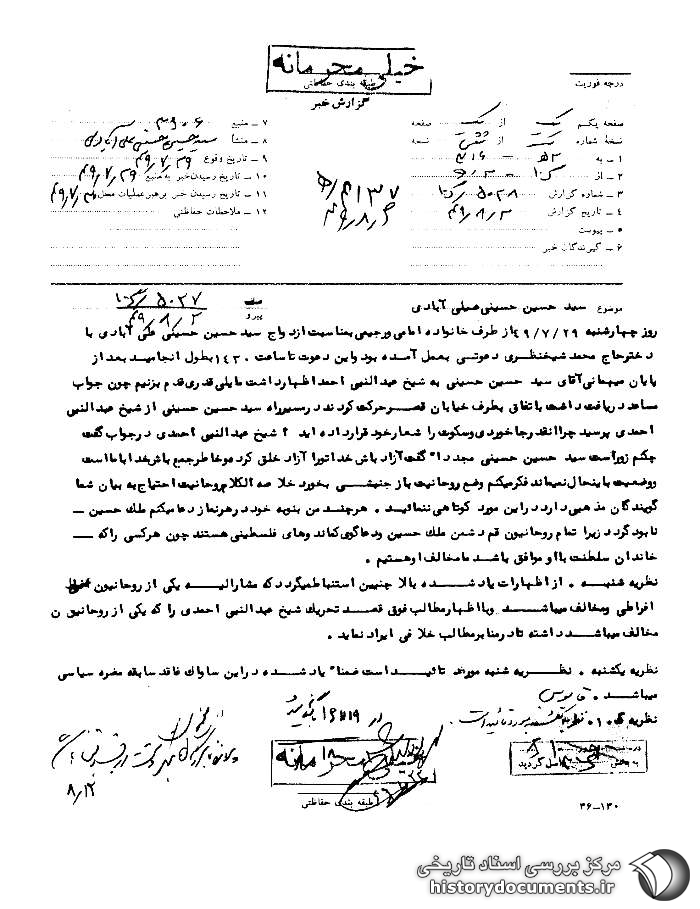 خیلی محرمانه
طبقه بندی حفاظتی
گزارش خبر
درجه فوریت
صفحه یکم یک از یک صفحه
نسخه شماره یک از شش نسخه
۱ ـ به
۲ ـ از
۳ ـ شماره گزارش
۴ ـ تاریخ گزارش ۴۹/۸/۲
۵ ـ پیوست
۶ ـ گیرندگان خبر
۷ ـ منبع ۳۹۰۶
۸ ـ منشأ سید حسین حسینی علی آبادی
۹ ـ تاریخ وقوع ۴۹/۷/۲۹
۱۰ ـ تاریخ رسیدن خبر به منبع ۴۹/۷/۲۹
۱۱ ـ تاریخ رسیدن خبر برهبر عملیات محل
۱۲ ـ ملاحظات حفاظتی
موضوع سید حسین حسینی علی آبادی
پیرو
روز چهارشنبه ۴۹/۷/۲۹ از طرف خانواده امامی ورجیعی بمناسبت ازدواج سید حسین حسینی علی آبادی با
دختر حاج محمد شیخ نظری دعوتی بعمل آمده بود واین دعوت تا ساعت ۱۴۳۰ بطول انجامید بعد از
پایان میهمانی آقای سید حسین حسینی به شیخ عبدالنبی احمد اظهار داشت مایلی قدری قدم بزنیم چون جواب
مساعد دریافت داشت باتفاق بطرف خیابان قصر حرکت کردند در مسیر راه سید حسین حسینی از شیخ عبدالنبی
احمدی پرسید چرا آنقدر جا خوردی وسکوت را شعار خود قرار داده اید ؟ شیخ عبدالنبی احمدی در جواب گفت
چکنم زور است سید حسین حسینی مجددا" گفت آزاد باش خدا تورا آزاد خلق کرده وخاطر جمع باش خدا با ما است
ووضعیت باینحال نمیماند فکر میکنم وضع روحانیت باز جنبشی بخورد خلاصه الکلام روحانیت احتیاج به بیان شما
گویندگان مذهبی دارد در این مورد کوتاهی ننمائید . هرچند من بنوبه خود در هر نماز دعا میکنم ملك حسین ـ
نابود گردد زیرا تمام روحانیون قم دشمن ملك حسین ودعاگوی کماندوهای فلسطینی هستند چون هرکسی را که ـ
خاندان سلطنت با او موافق باشد ما مخالف او هستیم .
نظریه شنبه . از اظهارات یاد شده بالا چنین استنباط میگردد که مشارالیه یکی از روحانیون
افراطی ومخالف میباشد وبا اظهار مطالب فوق قصد تحریك شیخ عبدالنبی احمدی را که یکی از روحانیون
مخالف میباشد داشته تا در منابر مطالب خلافی ایراد نماید .
نظریه یکشنبه . نظریه شنبه مورد تائید است ضمنا" یاد شده در این ساواك فاقد سابقه مضره سیاسی
میباشد .
نظریه
خیلی محرمانه
طبقه بندی حفاظتی
به بخش واصل گردید
۸/۱۲
۳۶-۱۳۰
مرکز بررسی اسناد تاریخی
historydocuments.ir